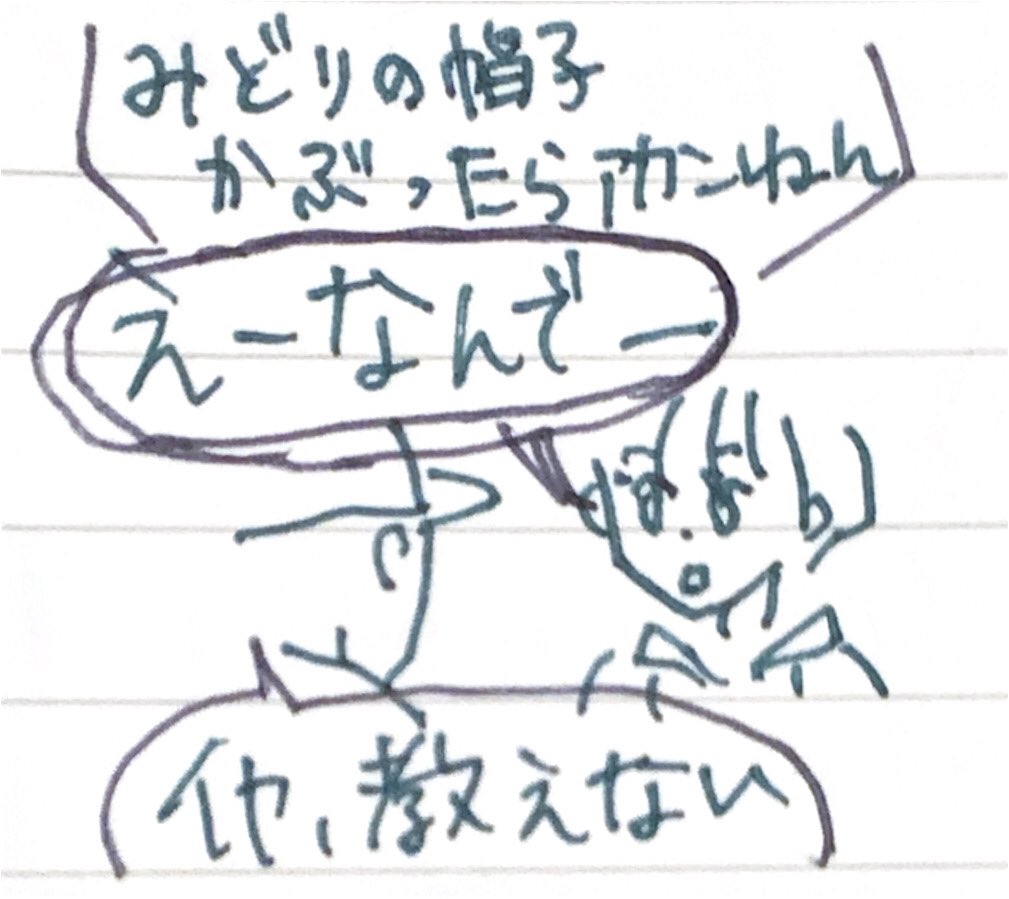 みどりの帽子
かぶったらアカンねん
えーなんでー
イヤ、教えない